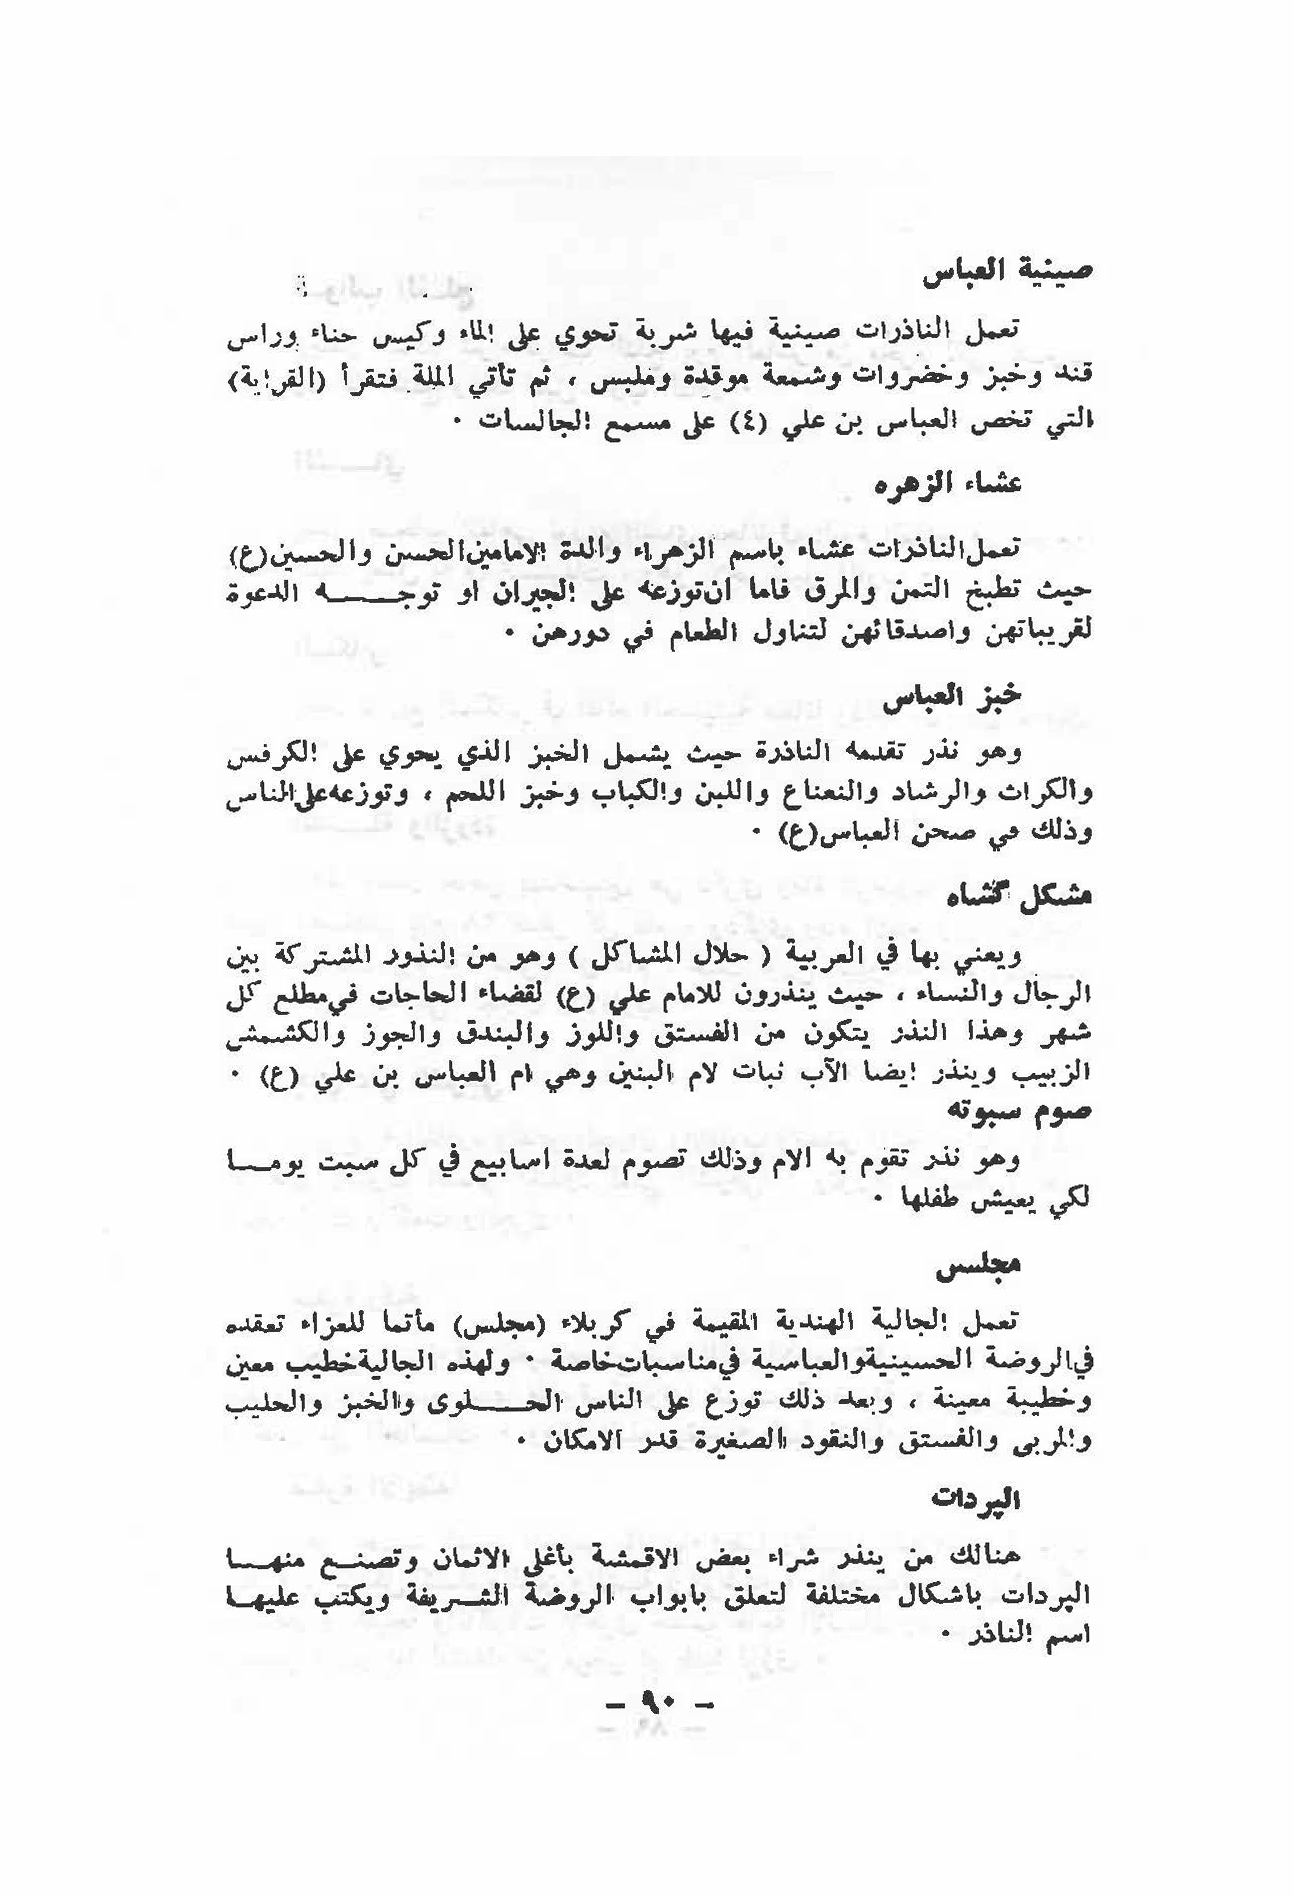 صينية العباس
تعمل الناذرات صينية فيها شربة تحوي على الماء وكيس حناء وراس
قند وخبز وخضروات وشمعة موقدة وملبس ، ثم تأتي الملة فتقرأ (القراية)
التي تخص العباس بن علي (٤) على مسمع الجالسات ٠
عشاء الزهره
تعمل الناذرات عشاء باسم الزهراء والدة الامامين الحسن والحسين (ع)
حيث تطبخ التمن والمرق فاما ان توزعه على الجيران او توجـــــه الدعوة
لقريباتهن واصدقائهن لتناول الطعام في دورهن ٠
خبز العباس
وهو نذر تقدمه الناذرة حيث يشمل الخبز الذي يحوي على الكرفس
والكراث والرشاد والنعناع واللبن والكباب وخبز اللحم ، وتوزعه على الناس
وذلك في صحن العباس (ع) ٠
مشكل گشاه
ويعني بها في العربية ( حلال المشاكل ) وهو من النذور المشتركة بين
الرجال والنساء ، حيث ينذرون للامام علي (ع) لقضاء الحاجات في مطلع كل
شهر وهذا النذر يتكون من الفستق واللوز والبندق والجوز والكشمش
الزبيب وينذر ايضا الآب نبات لام البنين وهي ام العباس بن علي (ع) ٠
صوم سبوته
وهو نذر تقوم به الام وذلك تصوم لعدة اسابيع في كل سبت يومـــا
لكي يعيش طفلها ٠
مجلس
تعمل الجالية الهندية المقيمة في كربلاء (مجلس) مأتما للعزاء تعقده
في الروضة الحسينية والعباسية في مناسبات خاصة ٠ ولهذه الجالية خطيب معين
وخطيبة معينة ، وبعد ذلك توزع على الناس الحـــــلوى والخبز والحليب
والمربى والفستق والنقود الصغيرة قدر الامكان ٠
الپردات
هنالك من ينذر شراء بعض الاقمشة بأغلى الاثمان وتصنـــع منهـــا
الپردات باشكال مختلفة لتعلق بابواب الروضة الشـــريفة ويكتب عليهـا
اسم الناذر ٠
– ٩٠ –